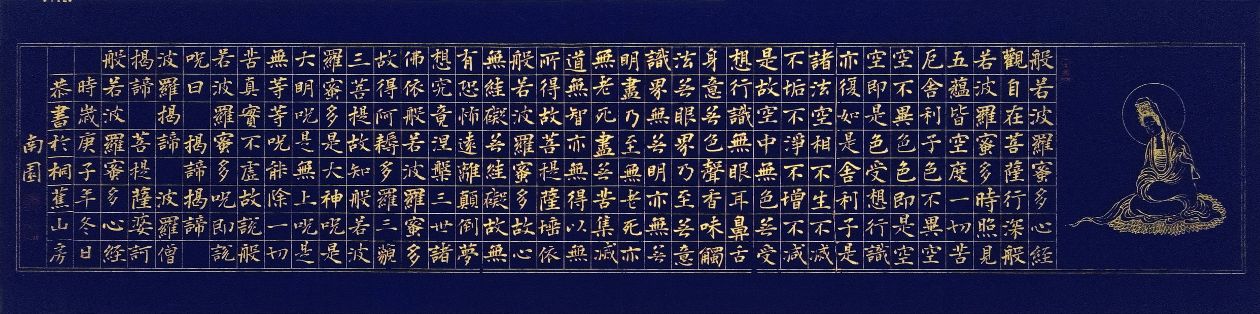 般若波羅蜜多心経
觀自在菩薩行深般
若波羅蜜多時照見
五蘊皆空度一切苦
厄舍利子色不異空
空不異色色即是空
空即是色受想行識
亦復如是舍利子是
諸法空相不生不滅
不垢不淨不增不減
是故空中無色无受
想行識無眼耳鼻舌
身意无色聲香味觸
法无眼界乃至无意
識界無无明亦無无
明盡乃至無老死亦
無老死盡无苦集滅
道無智亦無得以無
所得故菩提薩埵依
般若波羅蜜多故心
無罣礙无罣礙故無
有恐怖遠離顛倒夢
想究竟涅槃三世諸
佛依般若波羅蜜多
故得阿耨多羅三藐
三菩提故知般若波
羅蜜多是大神呪是
大明呪是無上呪是
無等等呪能除一切
苦真實不虛故說般
若波羅蜜多呪即說
呪曰 揭諦揭諦
波羅揭諦 波羅僧
揭諦 菩提薩婆訶
般若波羅蜜多心経
時歲庚子年冬日
恭書於桐蕉山房
南園